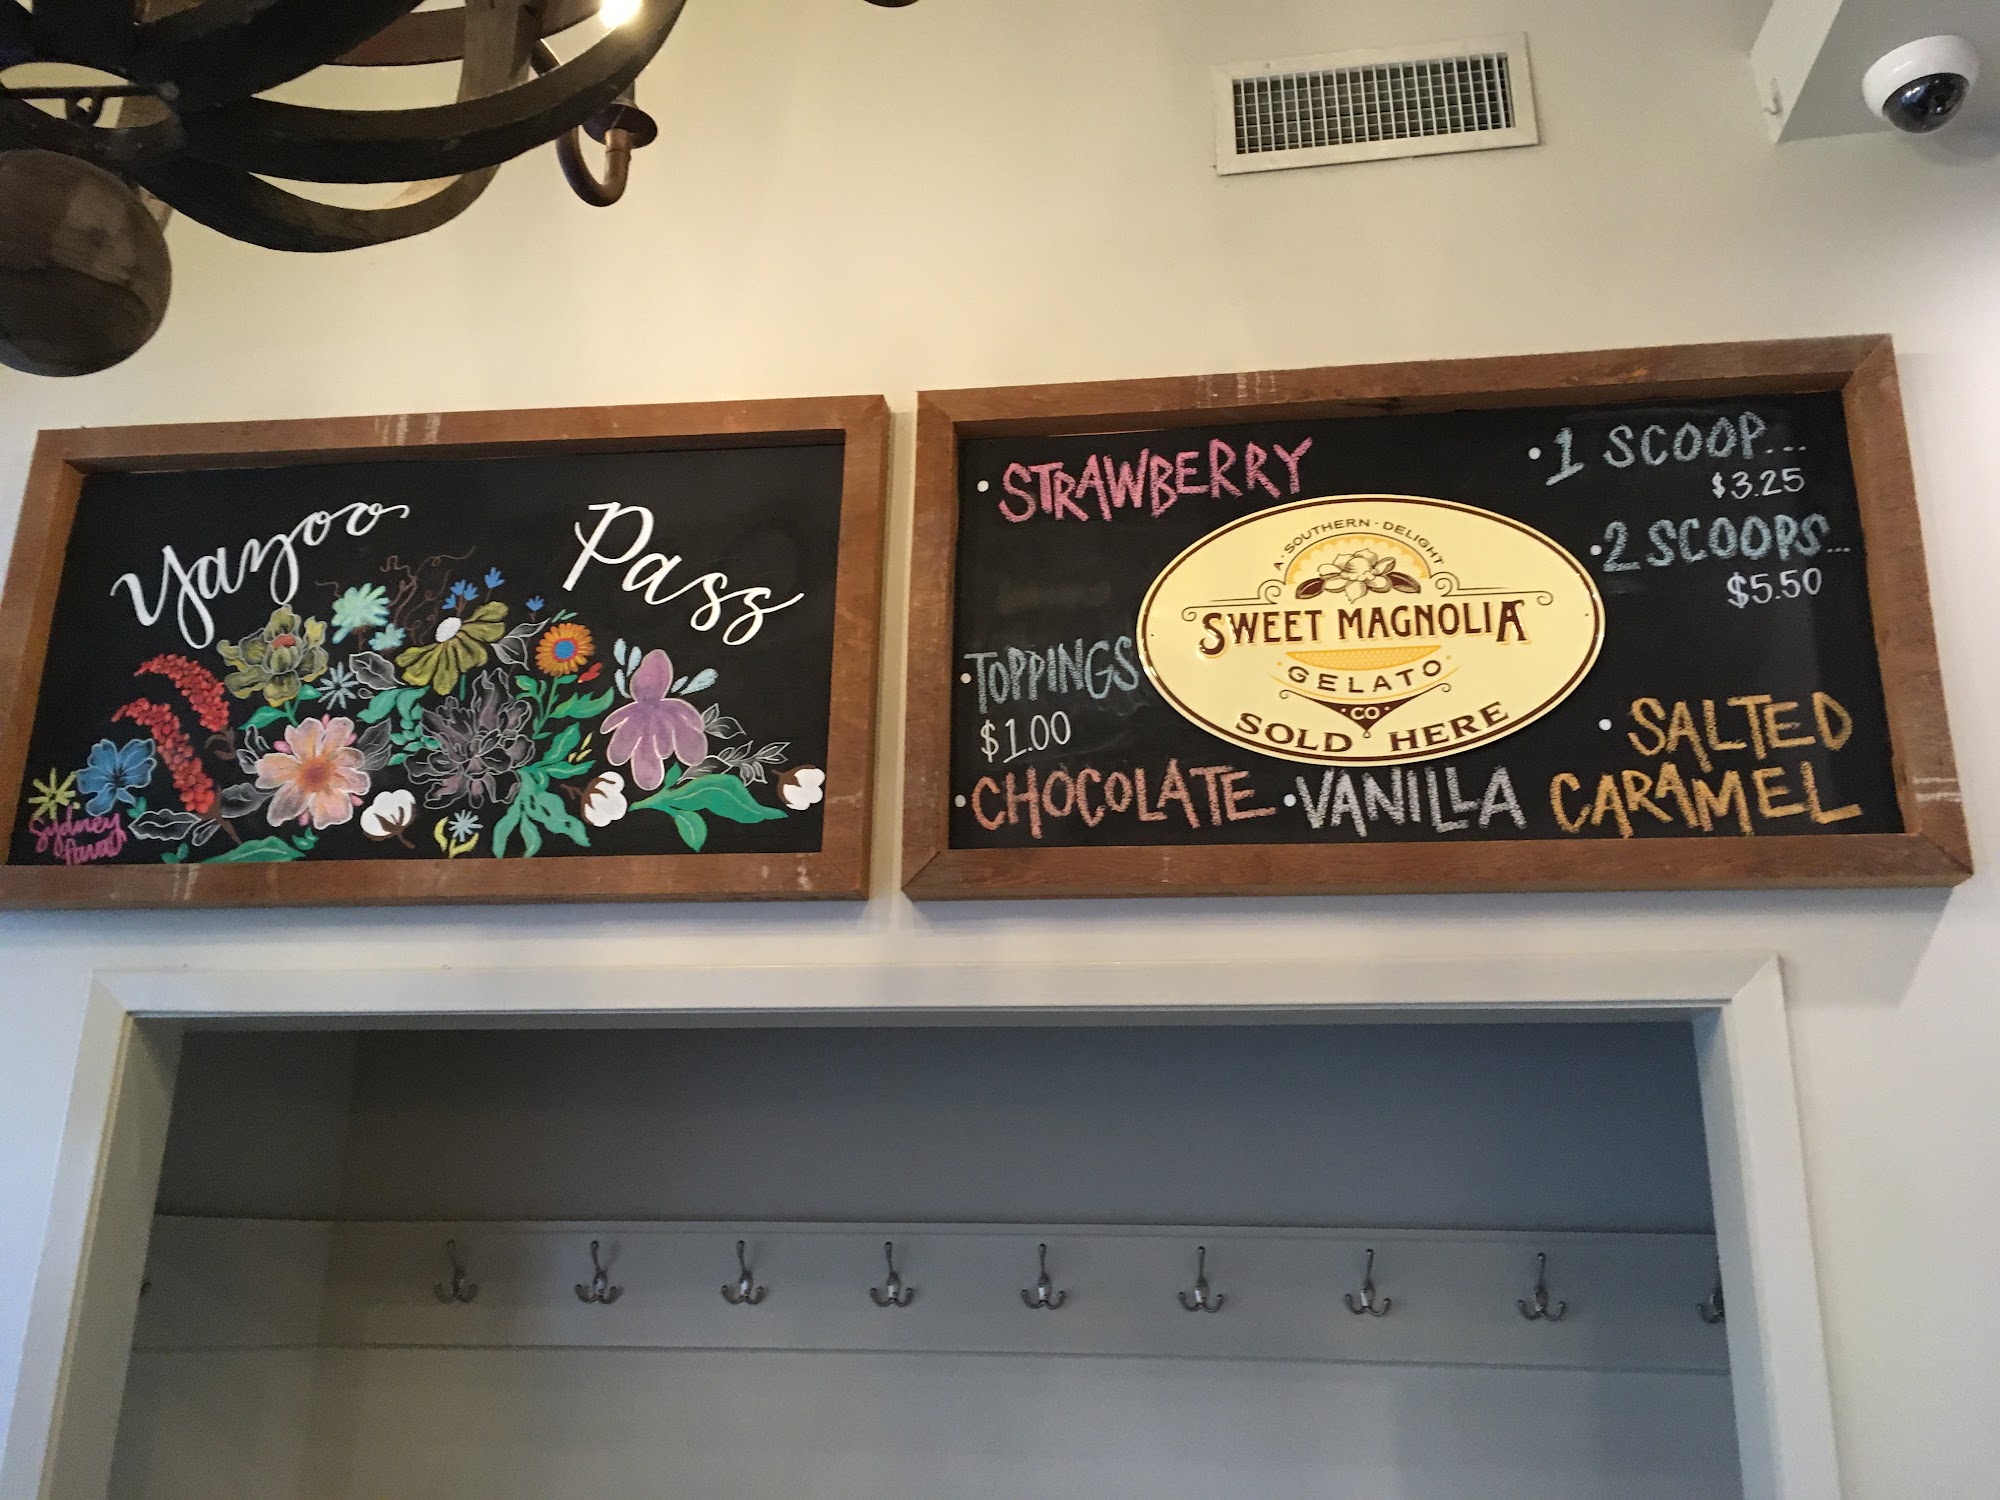 Yazoo Pass
Sydney
STRAWBERRY
1 SCOOP...
$3.25
2 SCOOPS...
$5.50
TOPPINGS
$1.00
A · SOUTHERN · DELIGHT
SWEET MAGNOLIA
· GELATO ·
· CO ·
SOLD HERE
· CHOCOLATE · VANILLA
· SALTED
CARAMEL